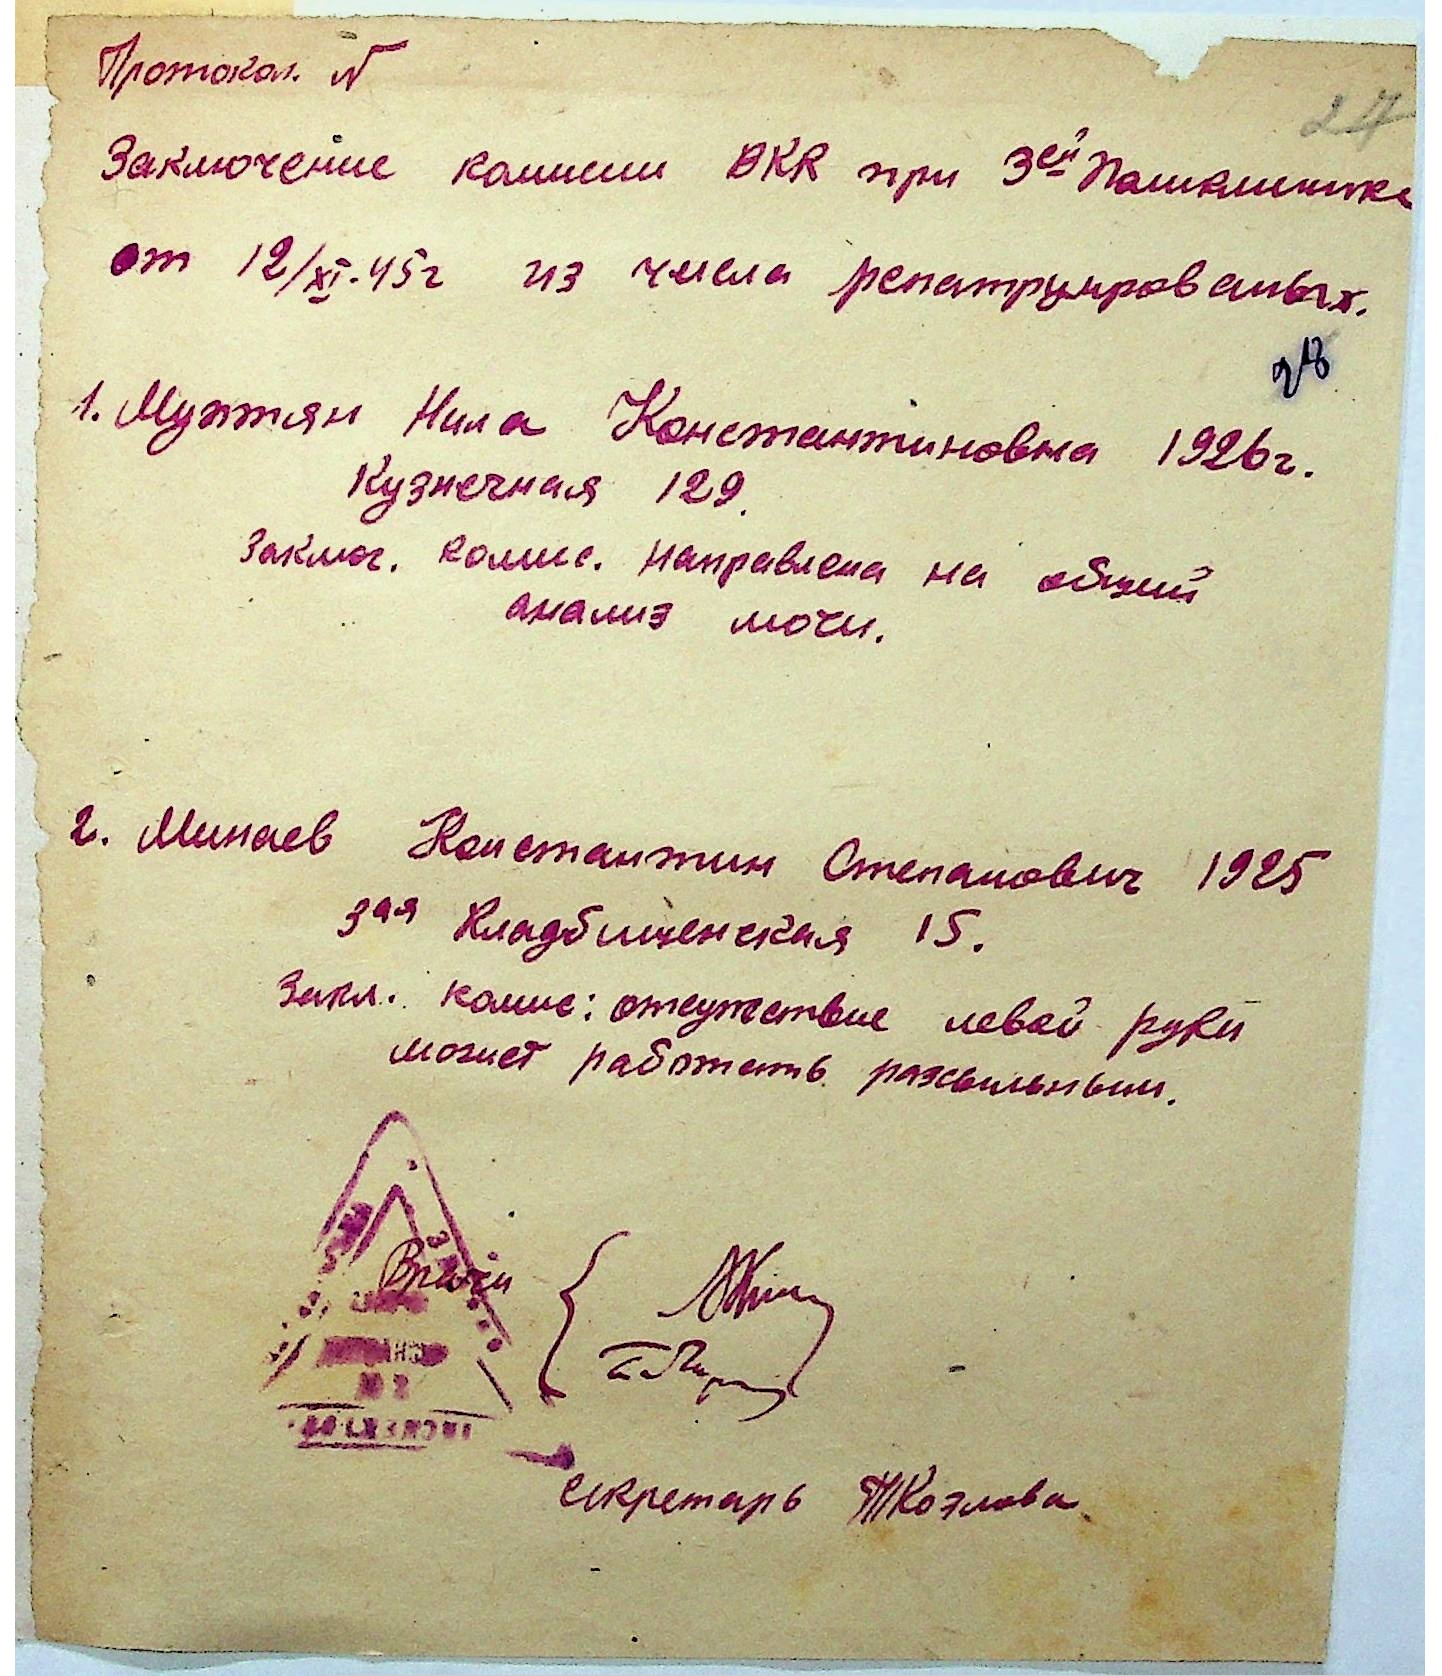 Протокол. N
27
Заключение комисии ВКК при 3ей Поликлинике
от 12/XI.45г из числа репатриированых.
28
1. Мужтян Нила Константиновна 1926г.
Кузнечная 129.
Заключ. комис. направлена на общий
анализ мочи.
2. Минаев Константин Степанович 1925
3ая Кладбищенская 15.
Закл. комис: отсутствие левой руки
может работать рассыльным.
Врачи
секретарь ТКозлова